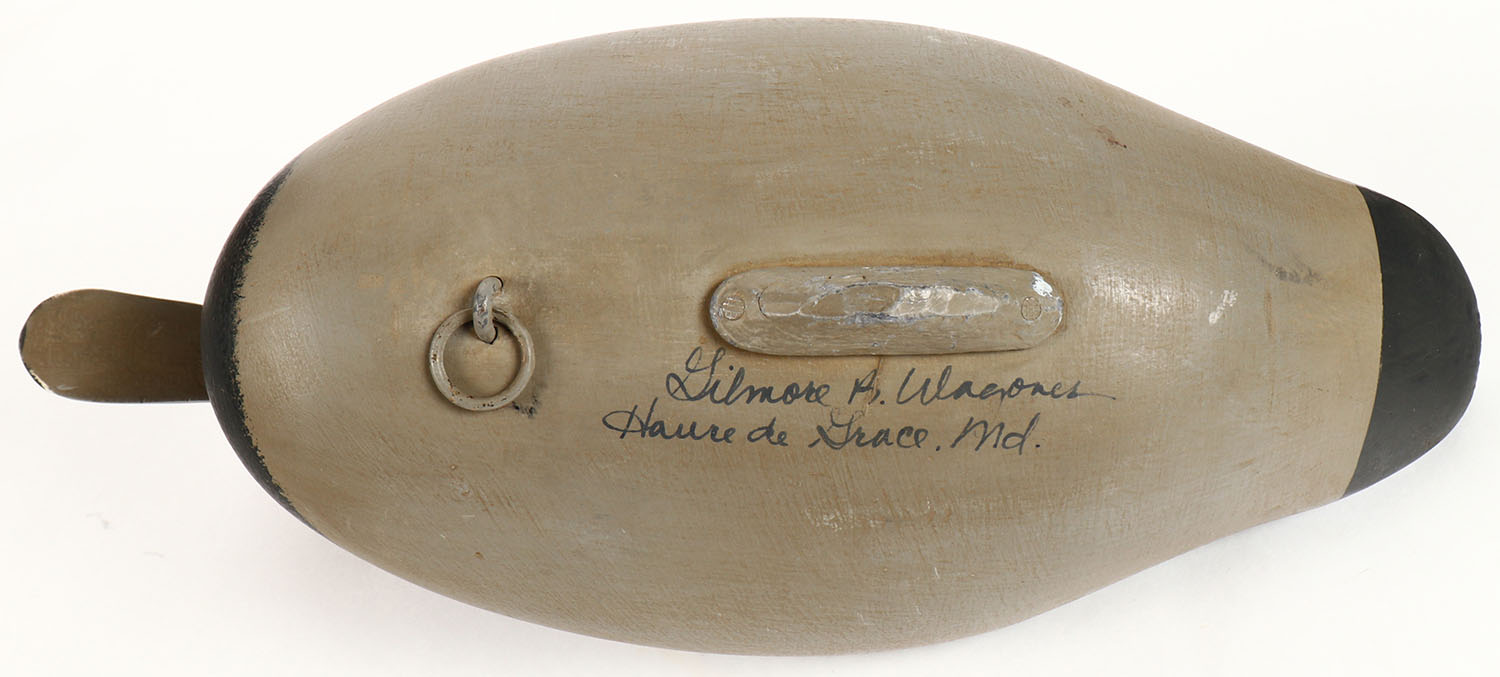 Gilmore B. Wagoner
Havre de Grace, Md.